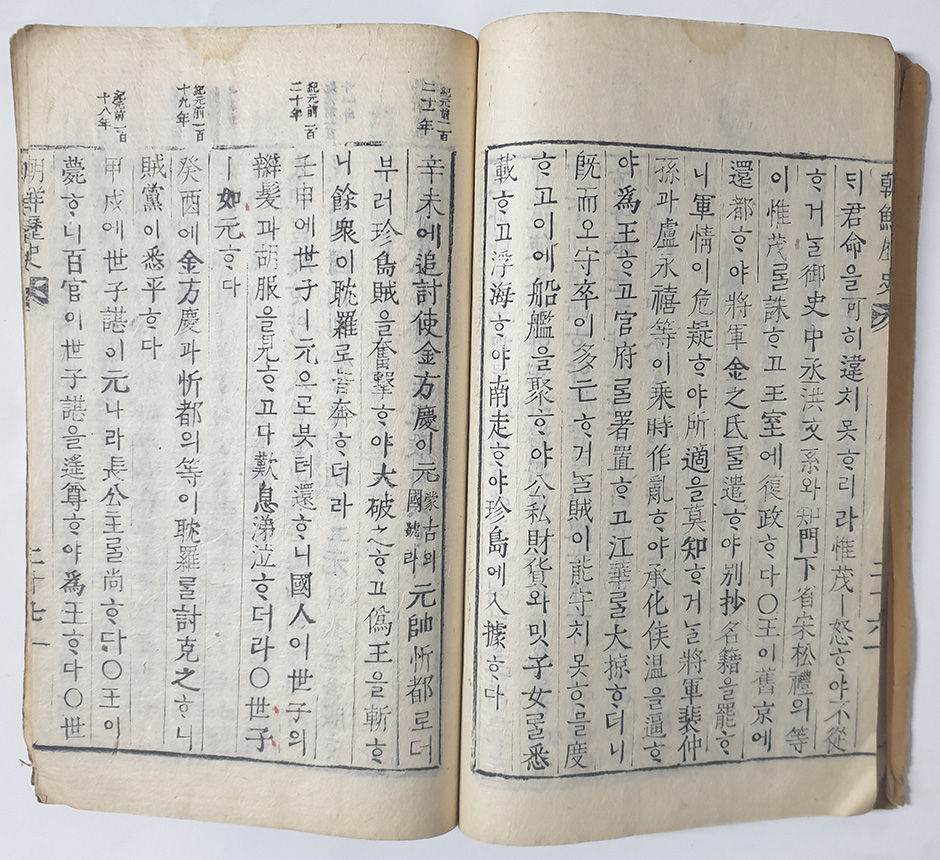 朝鮮歷史 二十六
디君命을可히違치못ᄒᆞ리라惟茂ㅣ怒ᄒᆞ야不從
ᄒᆞ거ᄂᆞᆯ御史中丞洪文系와知門下省宋松禮의等
이惟茂ᄅᆞᆯ誅ᄒᆞ고王室에復政ᄒᆞ다〇王이舊京에
還都ᄒᆞ야將軍金之氐ᄅᆞᆯ遣ᄒᆞ야別抄名籍을罷ᄒᆞ
니軍情이危疑ᄒᆞ야所適을莫知ᄒᆞ거ᄂᆞᆯ將軍裴仲
孫과盧永禧等이乘時作亂ᄒᆞ야承化侯温을逼ᄒᆞ
야爲王ᄒᆞ고官府ᄅᆞᆯ署置ᄒᆞ고江華ᄅᆞᆯ大掠ᄒᆞ더니
旣而오守卒이多亡ᄒᆞ거ᄂᆞᆯ賊이能守치못ᄒᆞ믈度
ᄒᆞ고이에船艦을聚ᄒᆞ야公私財貨와밋子女ᄅᆞᆯ悉
載ᄒᆞ고浮海ᄒᆞ야南走ᄒᆞ야珍島에入據ᄒᆞ다
紀元前一百
二十一年
辛未에追討使金方慶이元蒙古의國號라元帥忻都로더
부러珍島賊을奮擊ᄒᆞ야大破之ᄒᆞ고僞王을斬ᄒᆞ
니餘衆이耽羅로皆奔ᄒᆞ더라
紀元前一百
二十年
壬申에世子ㅣ元으로븟터還ᄒᆞ니國人이世子의
辮髮과胡服을見ᄒᆞ고다歎息涕泣ᄒᆞ더라〇世子
ㅣ如元ᄒᆞ다
紀元前一百
十九年
癸酉에金方慶과忻都의等이耽羅ᄅᆞᆯ討克之ᄒᆞ니
賊黨이悉平ᄒᆞ다
紀元前一百
十八年
甲戌에世子諶이元나라長公主ᄅᆞᆯ尚ᄒᆞ다〇王이
薨ᄒᆞ니百官이世子諶을遙尊ᄒᆞ야爲王ᄒᆞ다〇世
朝鮮歷史 二十七